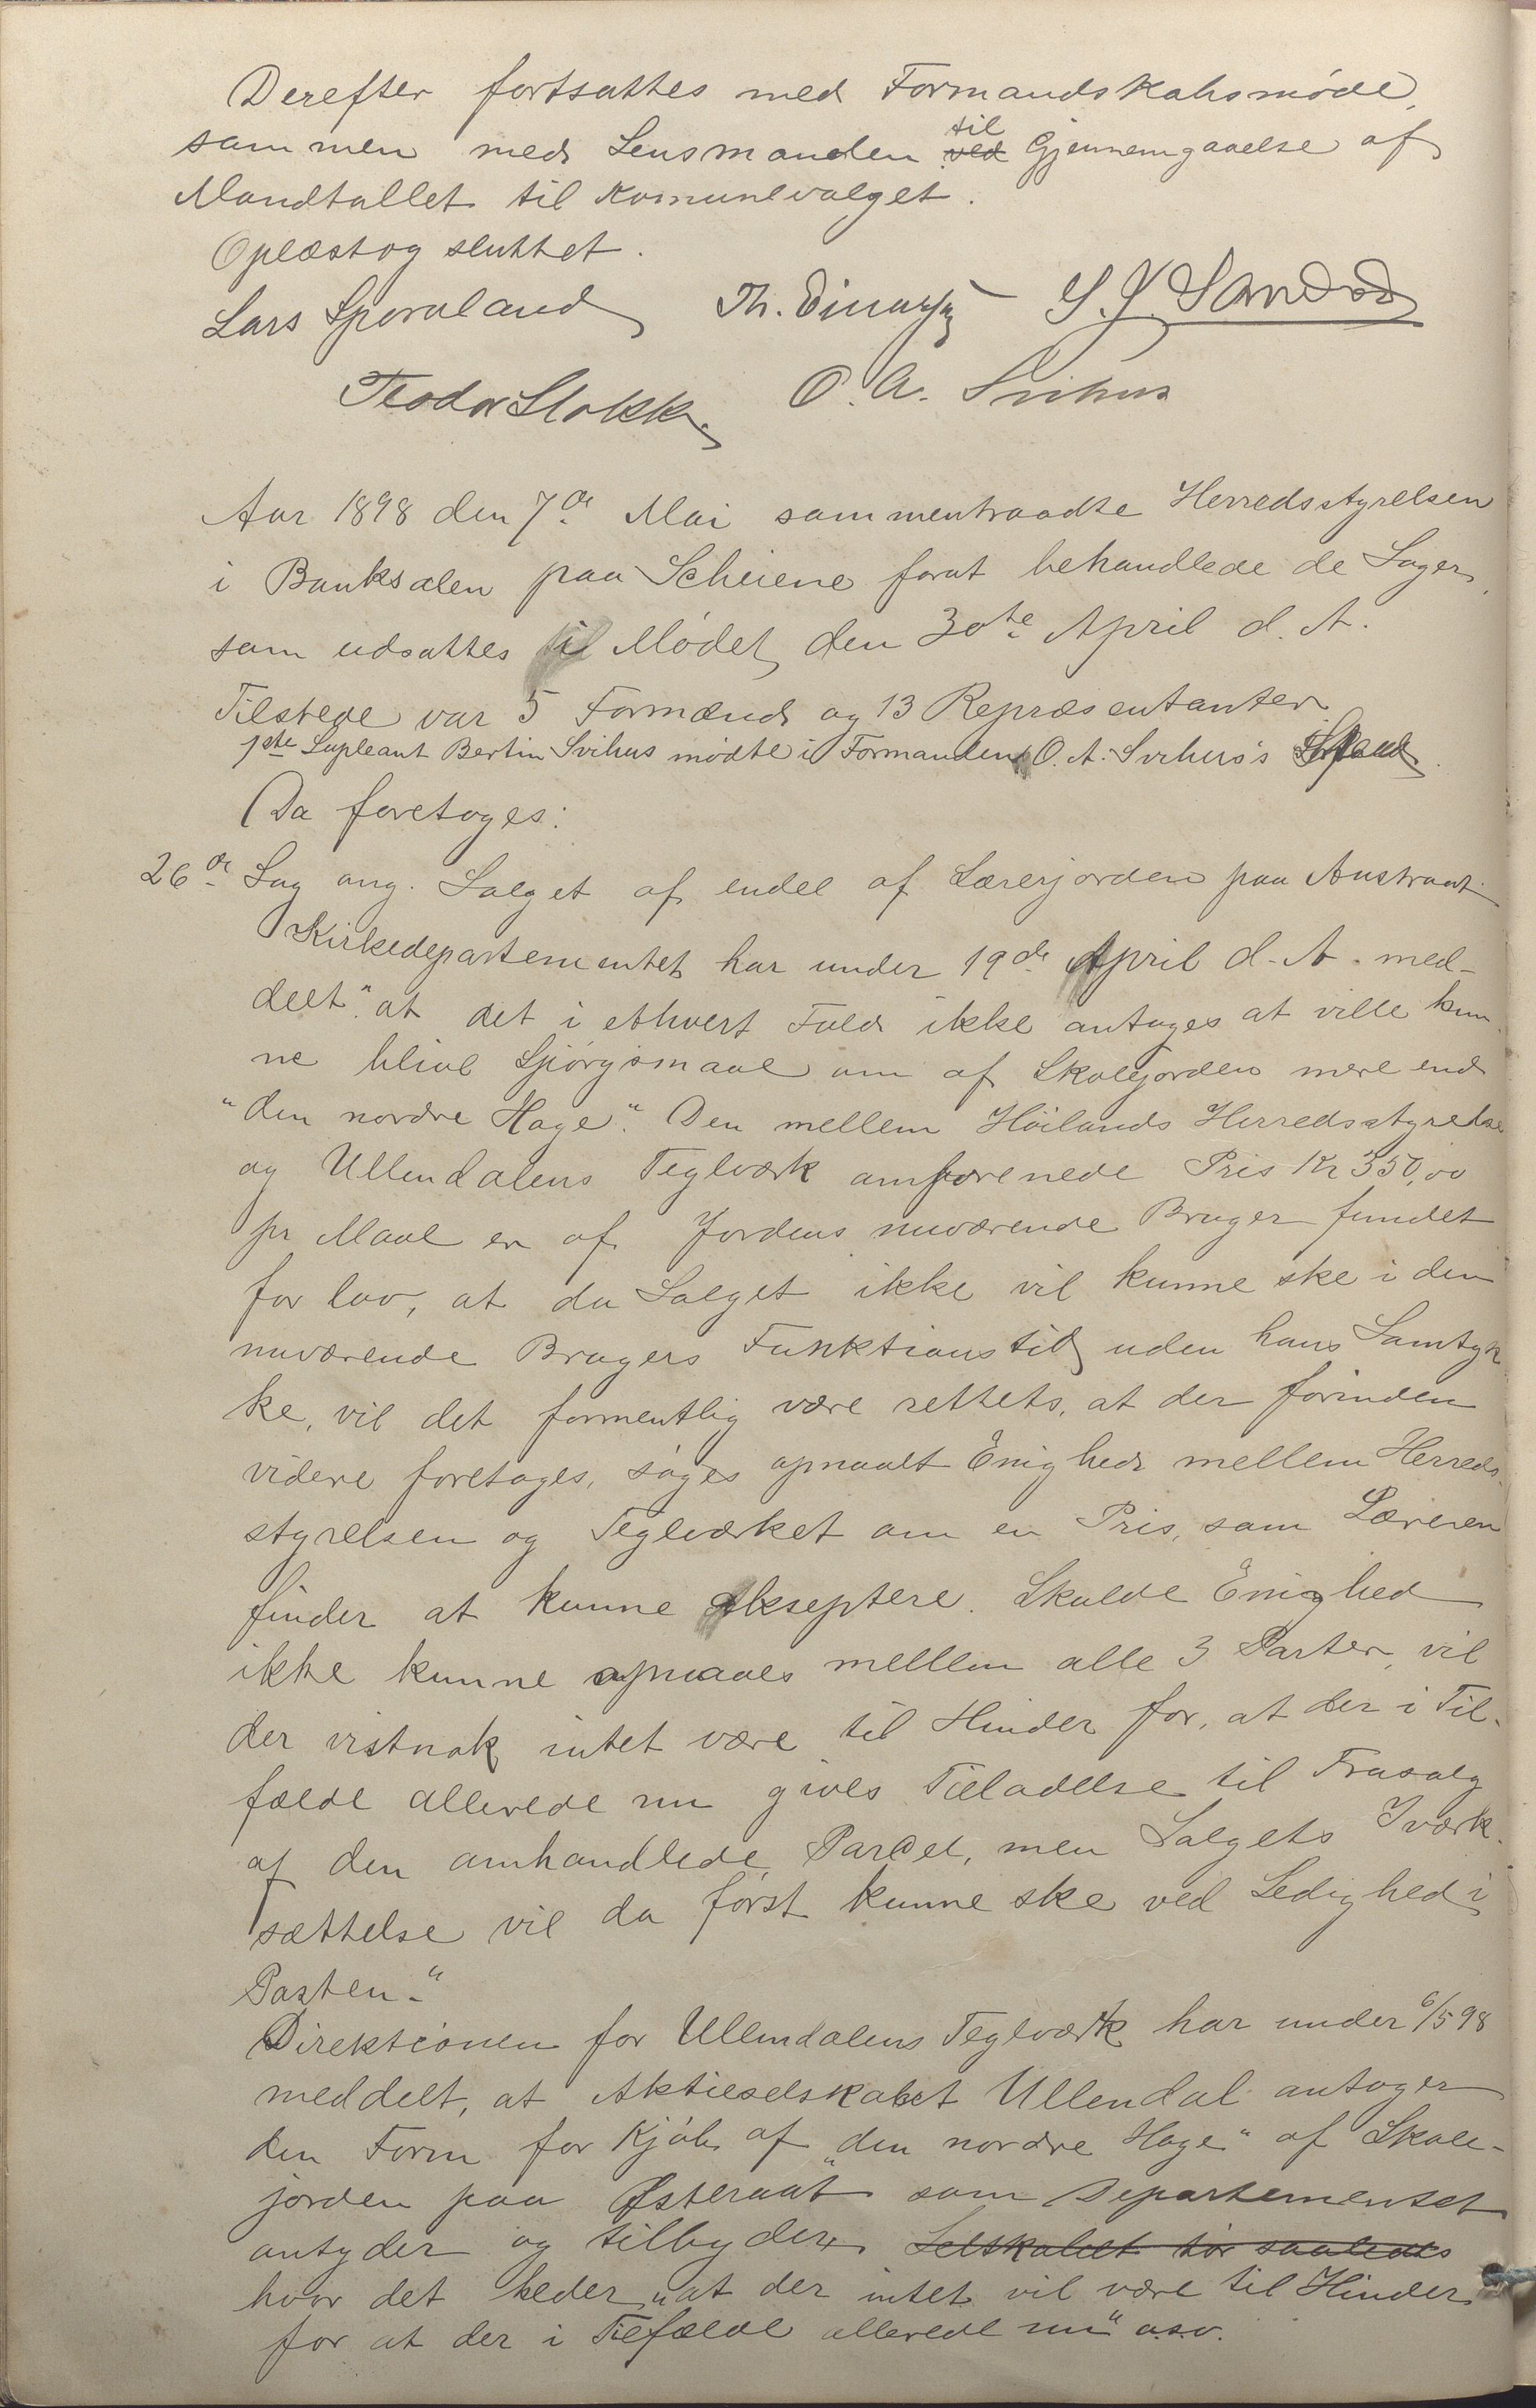 Derefter fortsattes med Formandskabsmøde,
sammen med Lensmanden til ved Gjennemgaaelse af
Mandtallet til Komunevalget.
Oplæst og sluttet.
Lars Sporaland Th. S. J. Sandvd
Teodor Stokke. O. A. Svihus
Aar 1898 den 7de Mai sammentraadte Herredsstyrelsen
i Banksalen paa Scheiene forat behandlede de Sager,
som udsattes til Mødet den 30te April d. A.
Tilstede var 5 Formænd og 13 Repræsentanter
1ste Supleant Bertin Svihus mødte i Formanden O. A. Svihus's Forfald.
Da foretoges:
26de Sag ang. Salget af endel af Lærerjorden paa Austraat.
Kirkedepartementet har under 19de April d. A. med-
delt "at det i ethvert Fald ikke antages at ville kun-
ne blive Spørgsmaal om af Skolejorden mere end
"den nordre Hage". Den mellem Høilands Herredsstyrelse
og Ullendalens Teglværk omforenede Pris Kr 350,00
pr Maal er af Jordens nuværende Bruger fundet
for lav, at da Salget ikke vil kunne ske i den
nuværende Brugers Funktionstid uden hans Samtyk
ke, vil det formentlig være rettets, at der forinden
videre foretages, søges opnaaet Enighed mellem Herreds-
styrelsen og Teglværket om en Pris, som Læreren
finder at kunne akseptere. Skulde Enighed
ikke kunne opnaaes mellem alle 3 Parter, vil
der vistnok intet være til Hinder for, at der i Til-
fælde allerede nu gives Tilladelse til Frasalg
af den omhandlede Parcel, men Salgets Iværk-
sættelse vil da først kunne ske ved Ledighed i
Posten."
Direktionen for Ullendalens Teglværk har under 6/5 98
meddelt, at Aktieselskabet Ullendal antager
den Form for Kjøb af "den nordre Hage" af Skole-
jorden paa Østeraat som Departementet
antyder og tilbyder, Selskabet tør saaledes
hvor det heder "at der intet vil være til Hinder
for at der i Tilfælde allerede nu" o.s.v.